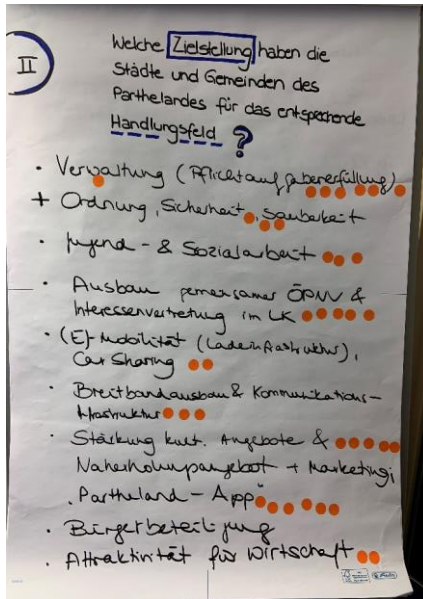 II
Welche Zielstellung haben die
Städte und Gemeinden des
Parthelandes für das entsprechende
Handlungsfeld ?
• Verwaltung (Pflichtaufgabenerfüllung)
+ Ordnung, Sicherheit, Sauberkeit
• Jugend- & Sozialarbeit
• Ausbau gemeinsamer ÖPNV &
Interessenvertretung im LK
• (E)-Mobilität (Ladeinfrastruktur),
Car Sharing
• Breitbandausbau & Kommunikations-
infrastruktur
• Stärkung kult. Angebote &
Naherholungsangebot + Marketing;
"Partheland-App"
• Bürgerbeteiligung
• Attraktivität für Wirtschaft